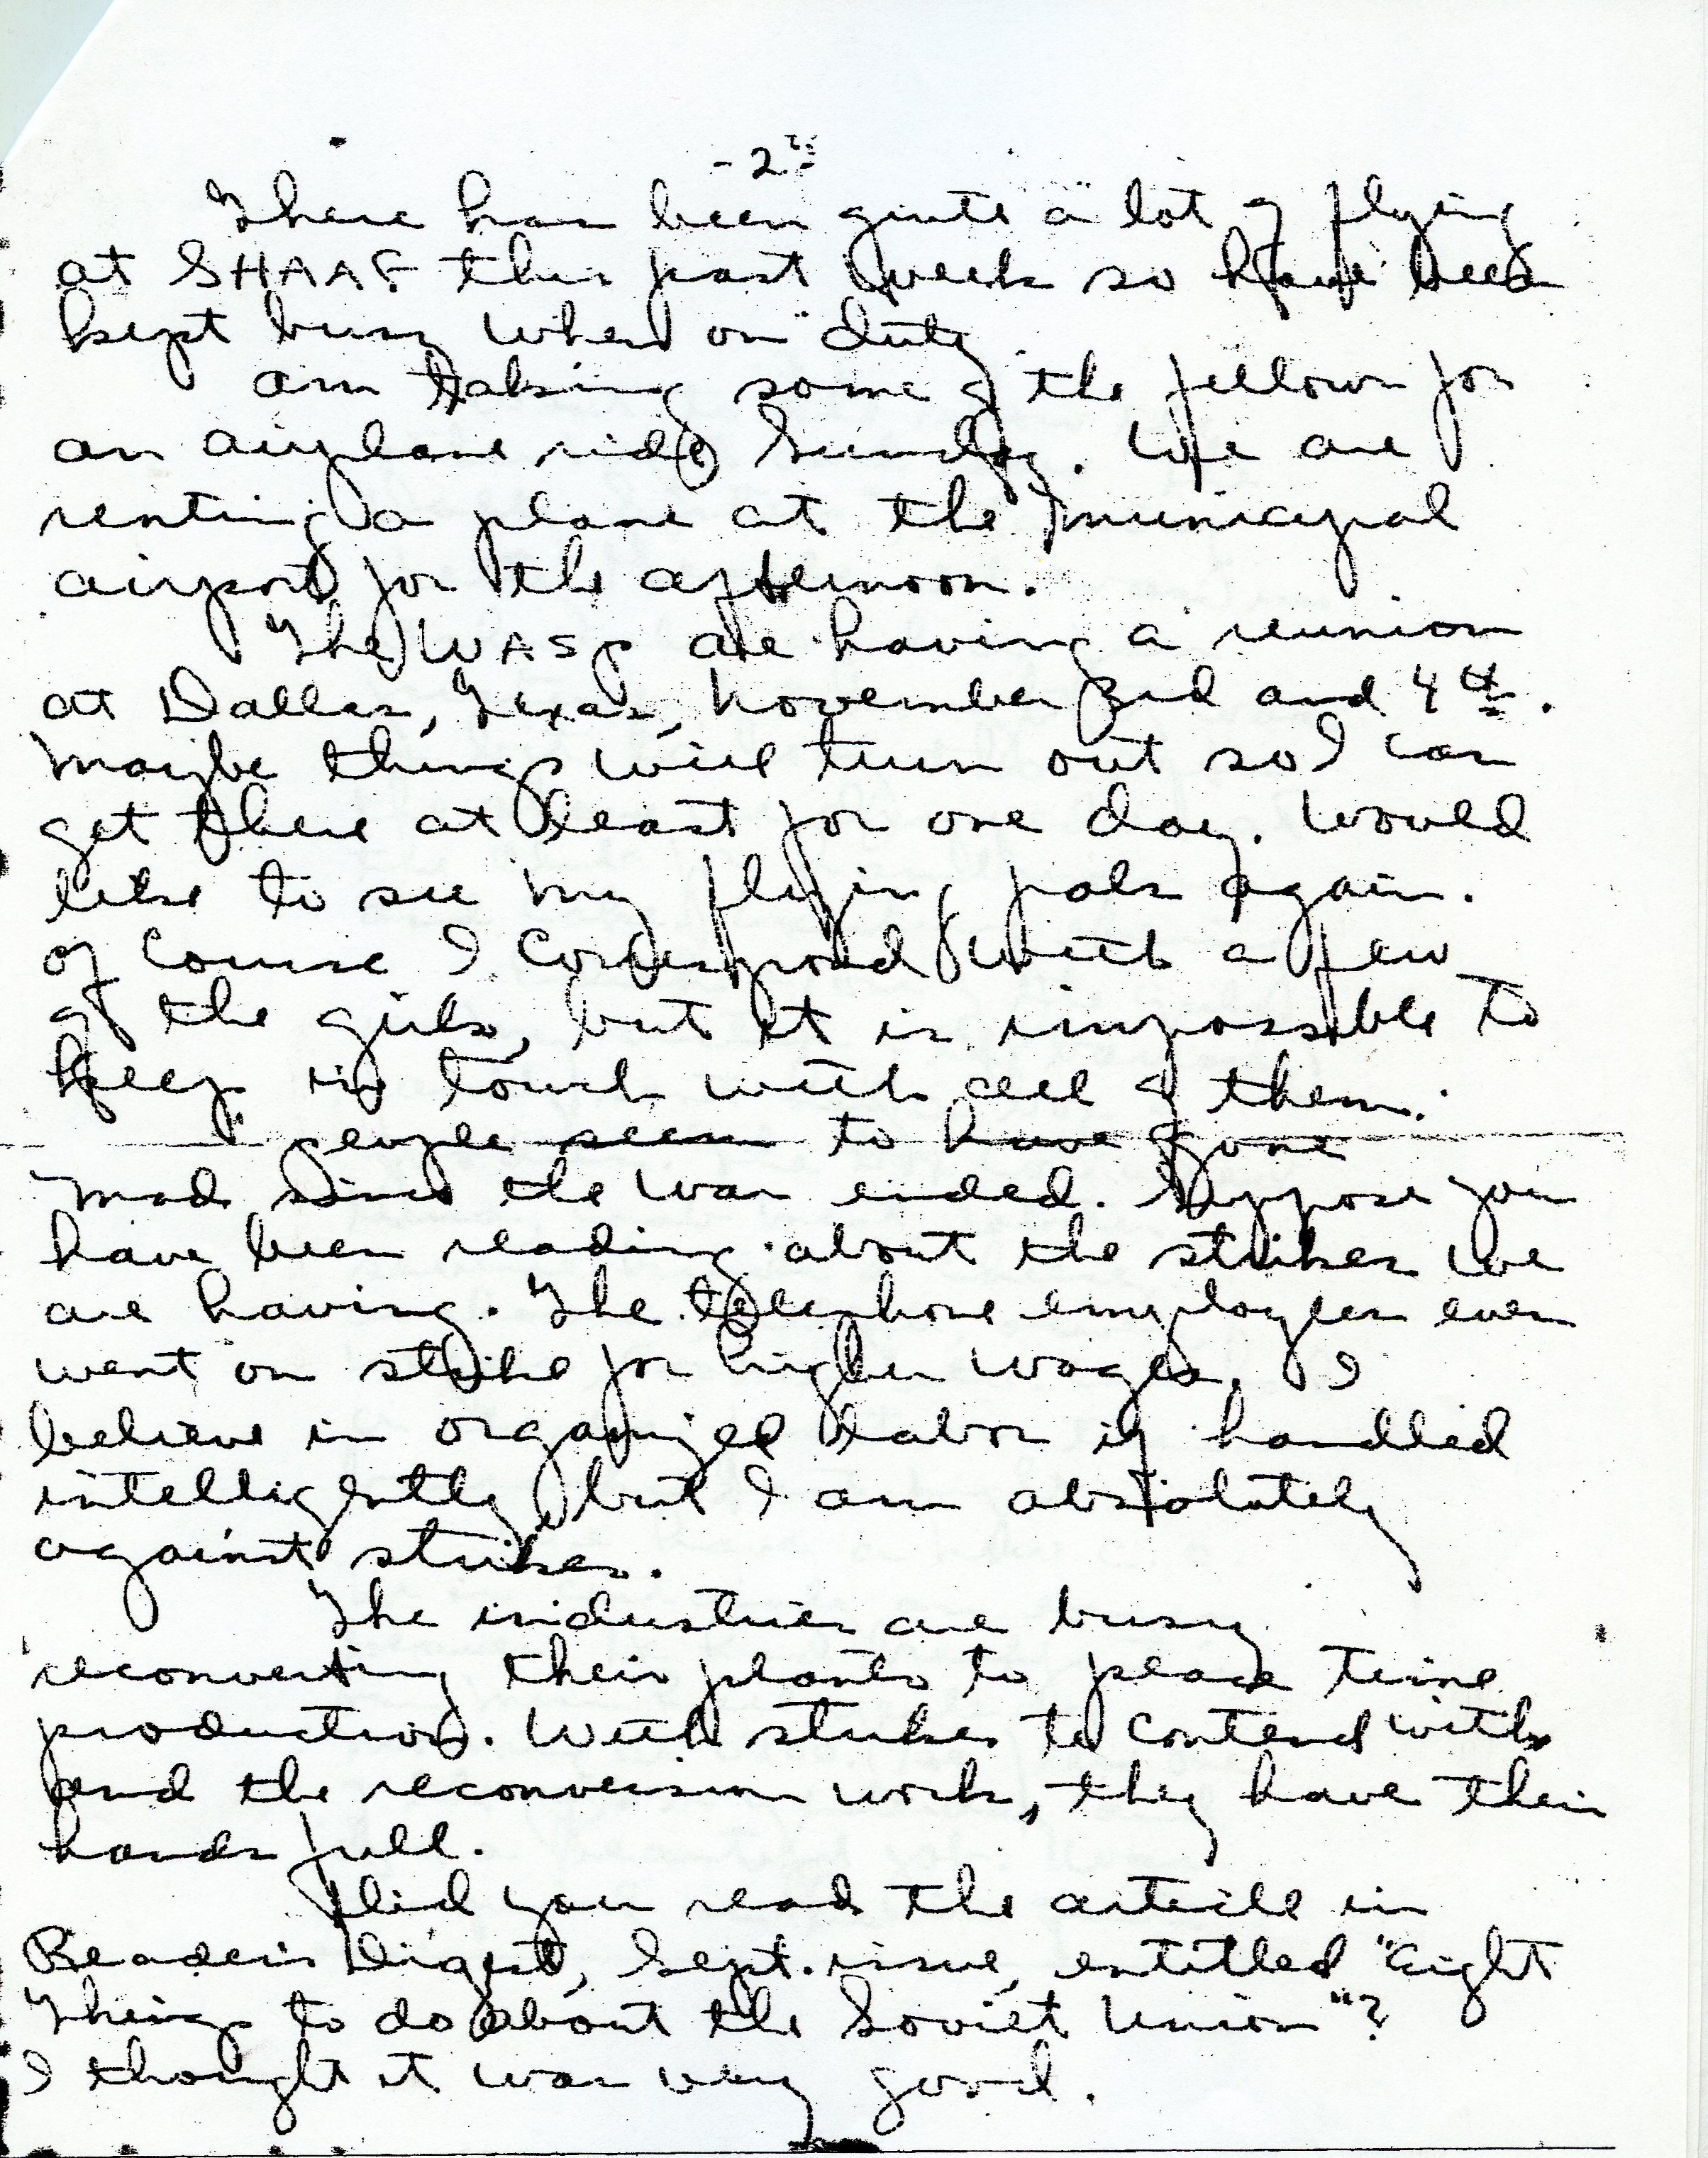 - 2 -
There has been quite a lot of flying
at SHAAF this past week so have been
kept busy when on duty.
Am taking some of the fellows for
an airplane ride Sunday. We are
renting a plane at the municipal
airport for the afternoon.
The WASP are having a reunion
at Dallas, Texas, November 3rd and 4th.
Maybe things will turn out so I can
get there at least for one day. Would
like to see my flying pals again.
Of course I correspond with a few
of the girls, but it is impossible to
keep in touch with all of them.
People seem to have gone
mad since the war ended. Suppose you
have been reading about the strikes we
are having. The telephone employees even
went on strike for higher wages. I
believe in organized labor if handled
intelligently, but I am absolutely
against strikes.
The industries are busy
reconverting their plants to peace time
production. With strikes to contend with
and the reconversion work, they have their
hands full.
Did you read the article in
Reader's Digest, Sept. issue, entitled "Eight
Things to do about the Soviet Union"?
I thought it was very good.